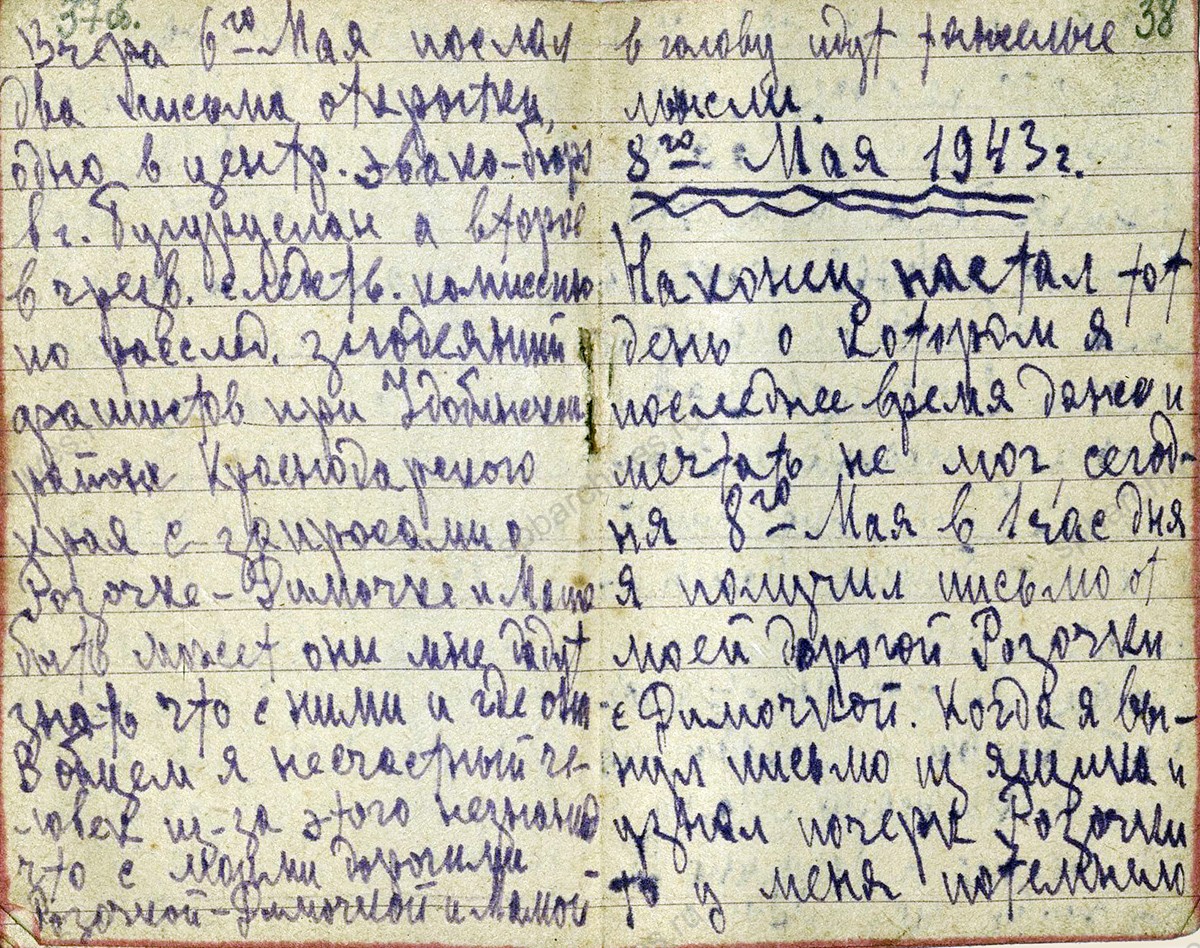 37об.
Вчера 6го Мая послал
два письма открытки,
одно в центр. эвако-бюро
в г. Бугуруслан а второе
в чрезв. следств. комиссию
по расслед. злодеяний
фашистов при Удобненском
районе Краснодарского
края с запросами о
Розочке-Димочке и Маме
быть может они мне дадут
знать что с ними и где они
В общем я несчастный че-
ловек из-за этого незнания
что с моими дорогими
Розочкой-Димочкой и Мамой
38
в голову идут тяжелые
мысли.
8го Мая 1943г.
Наконец настал тот
день о котором я
последнее время даже и
мечтать не мог, сегод-
ня 8го Мая в 1 час дня
я получил письмо от
моей дорогой Розочки
с Димочкой. Когда я вы-
нул письмо из ящика и
узнал почерк Розочки
то у меня потемнело